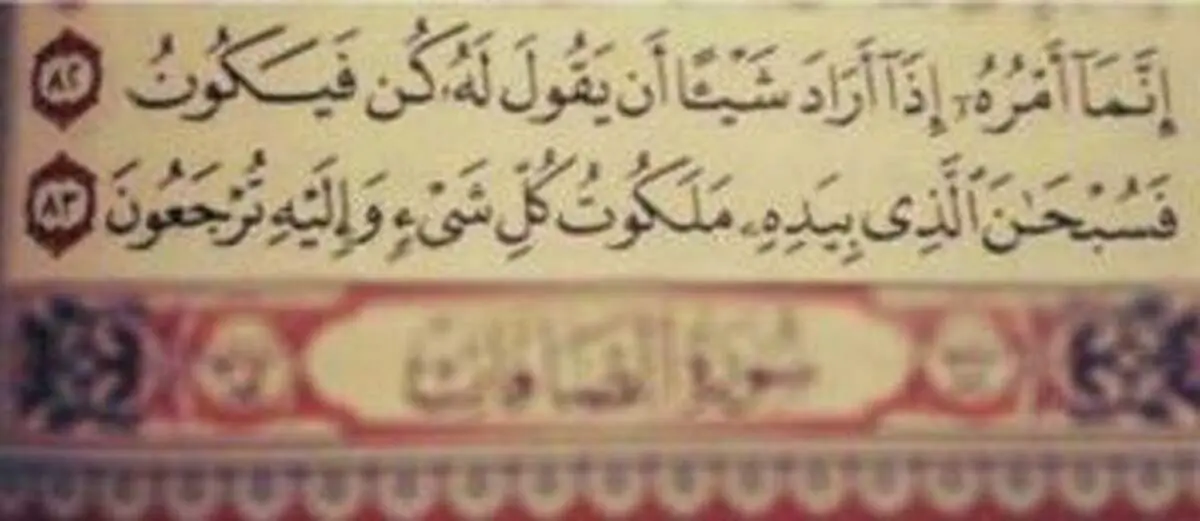 إِنَّمَآ أَمْرُهُۥٓ إِذَآ أَرَادَ شَيْـًٔا أَن يَقُولَ لَهُۥ كُن فَيَكُونُ ٨٢
فَسُبْحَـٰنَ ٱلَّذِى بِيَدِهِۦ مَلَكُوتُ كُلِّ شَىْءٍ وَإِلَيْهِ تُرْجَعُونَ ٨٣
سورة الصافات